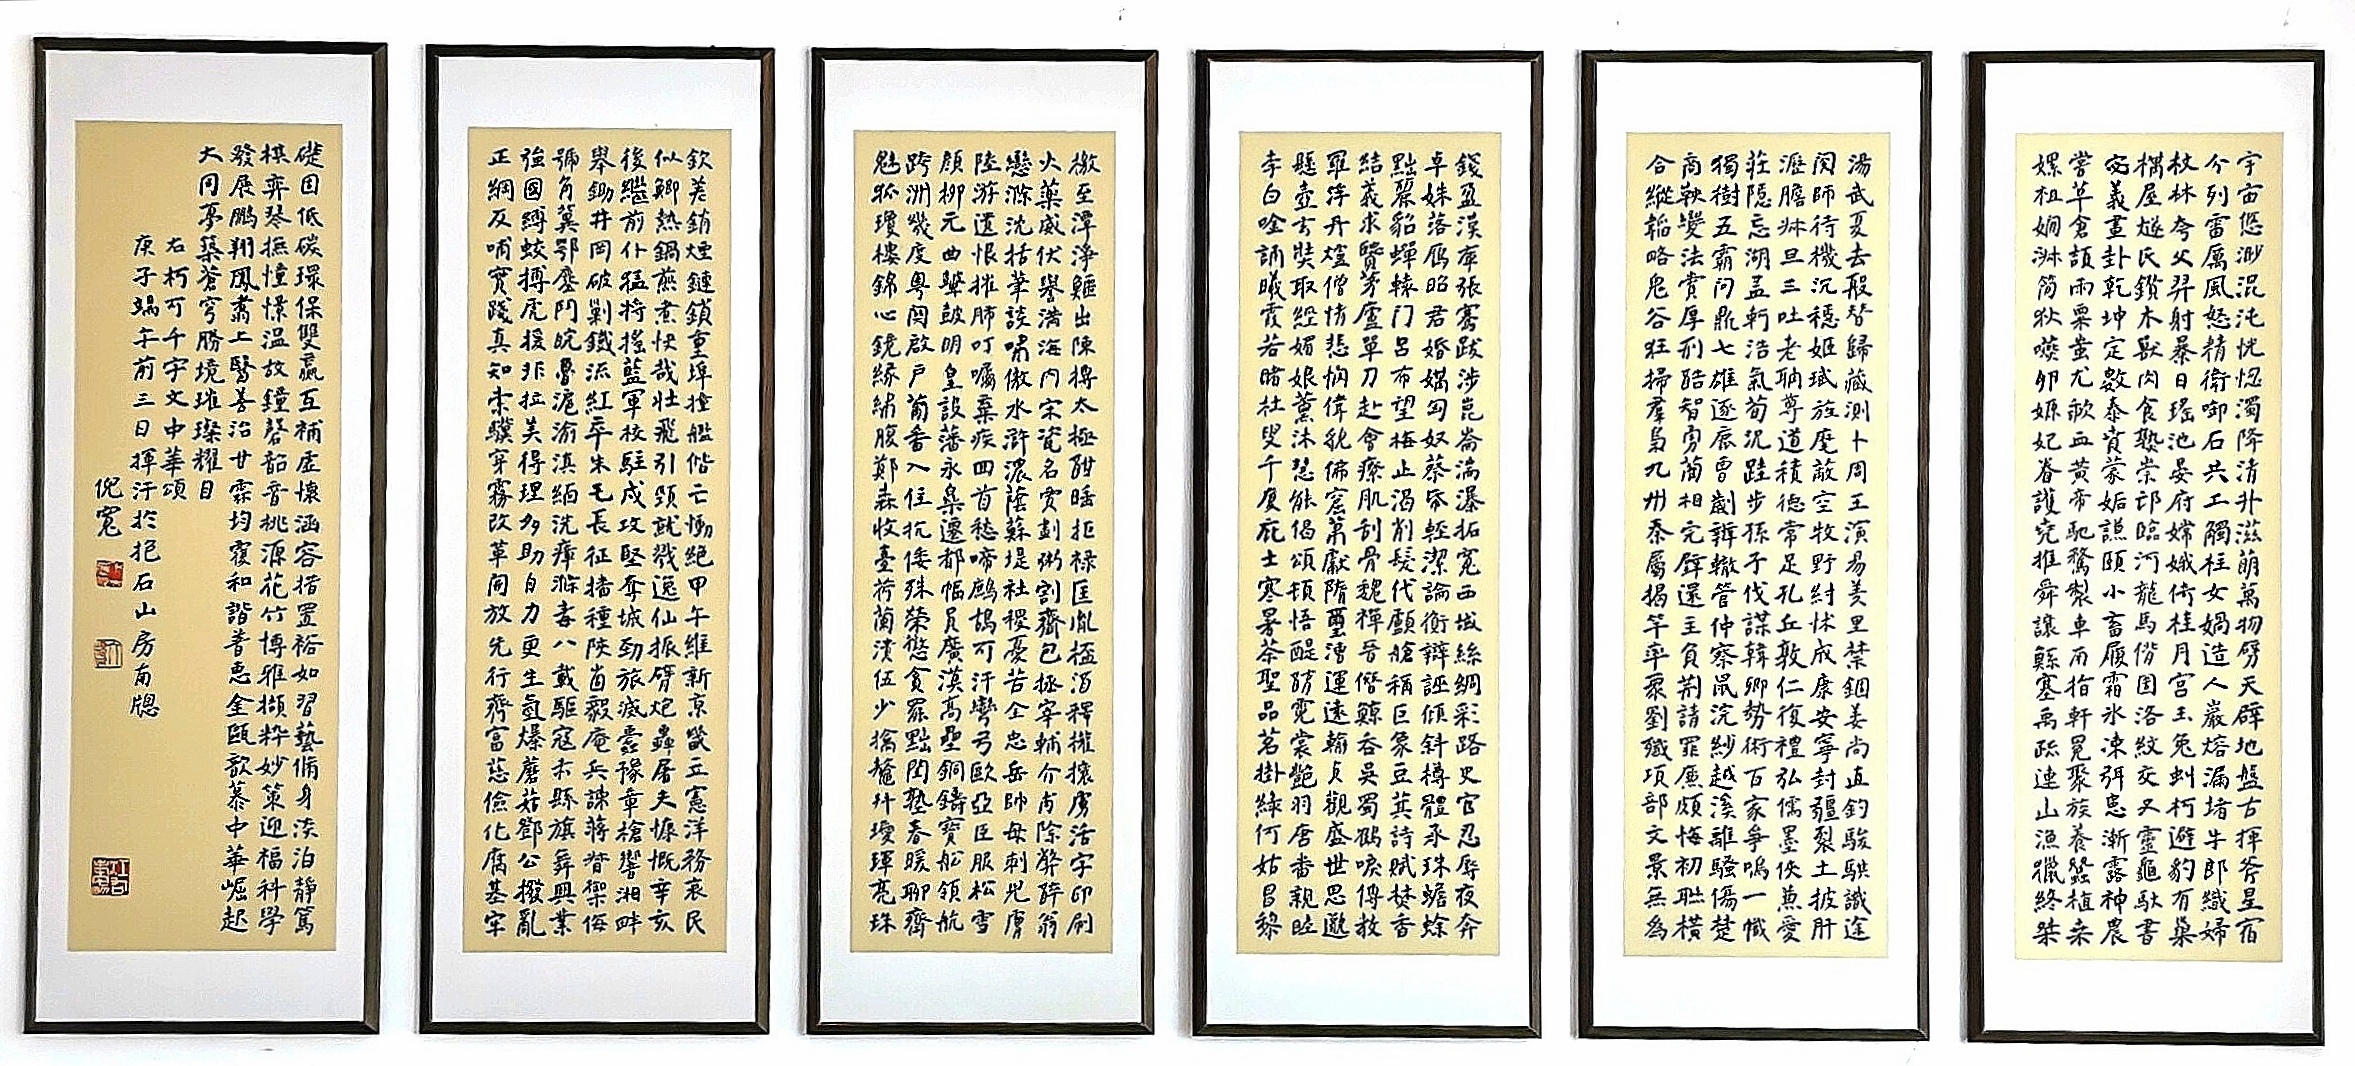 宇宙悠渺混沌恍惚濁降清升滋萌萬物劈天辟地盤古揮斧星宿
分列雷厲風怒精衛啣石共工觸柱女媧造人巖熔漏堵牛郎織婦
杖林夸父羿射暴日瑤池晏府嫦娥倚桂月宮玉兔虯柯避豹有巢
構屋燧氏鑽木獸肉食熟崇邙臨河龍馬背圖洛紋交叉靈龜馱書
宓羲畫卦乾坤定數泰賁蒙姤謙頤小畜履霜冰凍弭患漸露神農
嘗草倉頡雨粟蚩尤歃血黃帝馳騖製車南指軒冕聚族養蠶植桑
嫘祖嫻淋簡狄噬卵嫄妃眷護堯推舜讓鯀塞禹疏連山漁獵終桀
湯武夏去殷替歸藏測卜周王演易羑里禁錮姜尚直釣駿騏識途
閔師待機沉穩姬珷旌麾敵空牧野紂怵成康安寧封疆裂土披肝
瀝膽淋旦三吐老聃尊道積德常足孔丘敦仁復禮弘儒墨俠兼愛
莊隱忘湖孟軻浩氣荀況跬步孫子伐謀韓卿勢術百家爭鳴一幟
獨樹五霸問鼎七雄逐鹿曹劌辯轍管仲察鼠浣紗越溪離騷傷楚
商鞅變法賞厚刑酷智勇藺相完璧還主負荊請罪廉頗悔初聯橫
合縱韜略鬼谷狂掃羣梟九州秦屬揭竿率眾劉殲項部文景無為
錢盈漠庫張騫跋涉崑崙湍瀑拓寬西域絲綢彩路史官忍辱夜奔
卓姝落雁昭君婚媾匈奴蔡帋輕潔論衡辯誣傾斜樽體承珠蟾蜍
黠翟貂蟬轅門呂布望梅止渴削髮代顱艙稱巨象豆萁詩賦焚香
結義求賢茅廬單刀赴會療肌刮骨魏禪晉僭鯨吞吳蜀鶴唳傅救
羅浮丹爐僧情悲憫偉貌佛窟第獻隋璽漕運遠輸貞觀盛世思邈
懸壺玄奘取經媚娘薰沐慧能偈頌頓悟醍醐霓裳艷羽唐番親睦
李白唫誦曦霞若睹杜叟千廈庇士寒暑茶聖品茗掛綠何姑昌黎
檄至潭淨軀出陳摶太極酣睡拒祿匡胤極酒釋權攘虜活字印刷
火藥威伏譽滿海內宋瓷名窯劃粥割齏包拯宰輔介甫除弊醉翁
戀滁沈括筆談嘯傲水滸濃蔭蘇堤社稷憂苦全忠岳帥母刺兒膚
陸游遺恨摧肺叮囑棄疾回首愁啼鷓鴣可汗彎弓歐亞臣服松雪
顏柳元曲顰鼓明皇設藩永樂遷都幅員廣漠高壘銅鑄寶船領航
跨洲幾度粵閩啟戶葡香入住抗倭殊榮懲貪罷黜閏塾春暖聊齋
魑狐瓊樓錦心鏡緣繡腹鄭森收臺荷蘭潰伍少擒鰲廾璦琿亮珠
欽差銷煙鏈鎖重埠撞艦偕亡慟絕甲午維新京畿立憲洋務哀民
似鯽熱鍋煎煮快哉壯飛引頸就戮逸仙振臂炮轟屠夫慷慨辛亥
後繼前仆猛將搖藍軍校駐戍攻堅奪城勁旅滅蠹豫章槍響湘畔
舉鋤井岡破剿鐵流紅卒朱毛長征播種陝酋毅庵兵諫蔣督禦侮
號角冀鄂鏖鬥皖魯滬渝滇緬洗瘴滌毒八載驅寇赤縣旗舞興業
強國縛蛟搏虎援非拉美得理多助自力更生氫爆蘑菇鄧公撥亂
正綱反哺實踐真知索驥穿霧改革開放先行齊富慈儉化腐基牢
礎固低碳環保雙贏互補虛懷涵容措置裕如習藝脩身淡泊靜篤
棋弈琴撫憧憬溫故鐘磬韶音桃源花竹博雅擷粹妙策迎福科學
發展鵬翔鳳翥上醫善治甘霖均霑和諧普惠金甌歌慕中華崛起
大同夢築蒼穹勝境璀璨耀目
右朽可千字文中華頌
庚子端午前三日揮汗於抱石山房南牕
倪寬